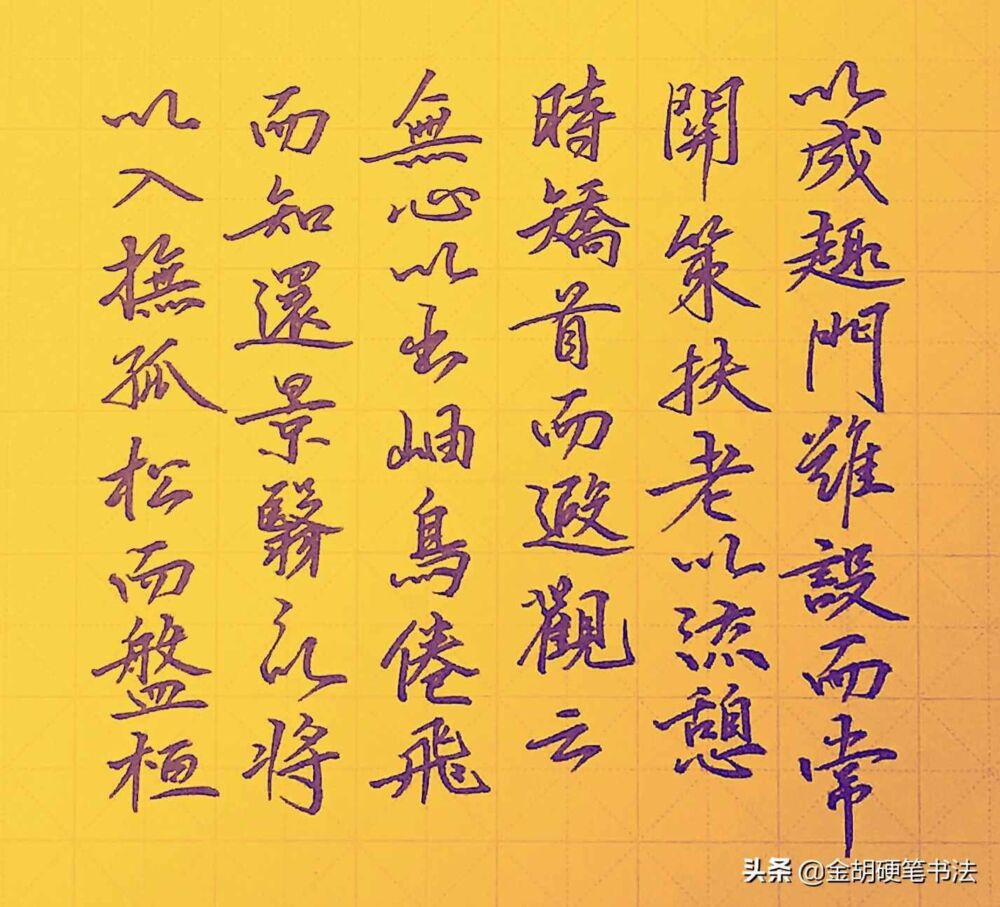 以成趣門雖設而常
開策扶老以流憩
時矯首而遐觀云
無心以出岫鳥倦飛
而知還景翳以將
以入撫孤松而盤桓
头条 @金胡硬笔书法